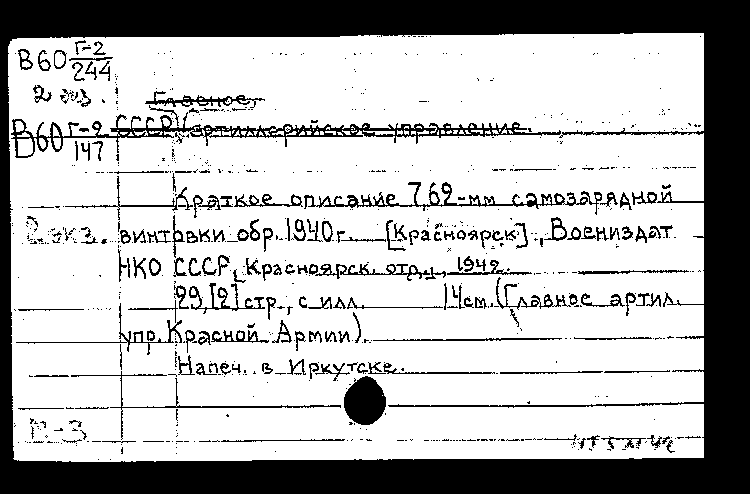 В60 Г-2
244
2 экз.
Главное
В60 Г-2
147
СССР. артиллерийское управление.
Краткое описание 7,62-мм самозарядной
2 экз. винтовки обр. 1940г. [Красноярск], Воениздат
НКО СССР, Красноярск. отд-, 1942.
29,[2] стр., с илл. 14см. (Главное артил.
упр. Красной Армии).
Напеч. в Иркутске.
П-3